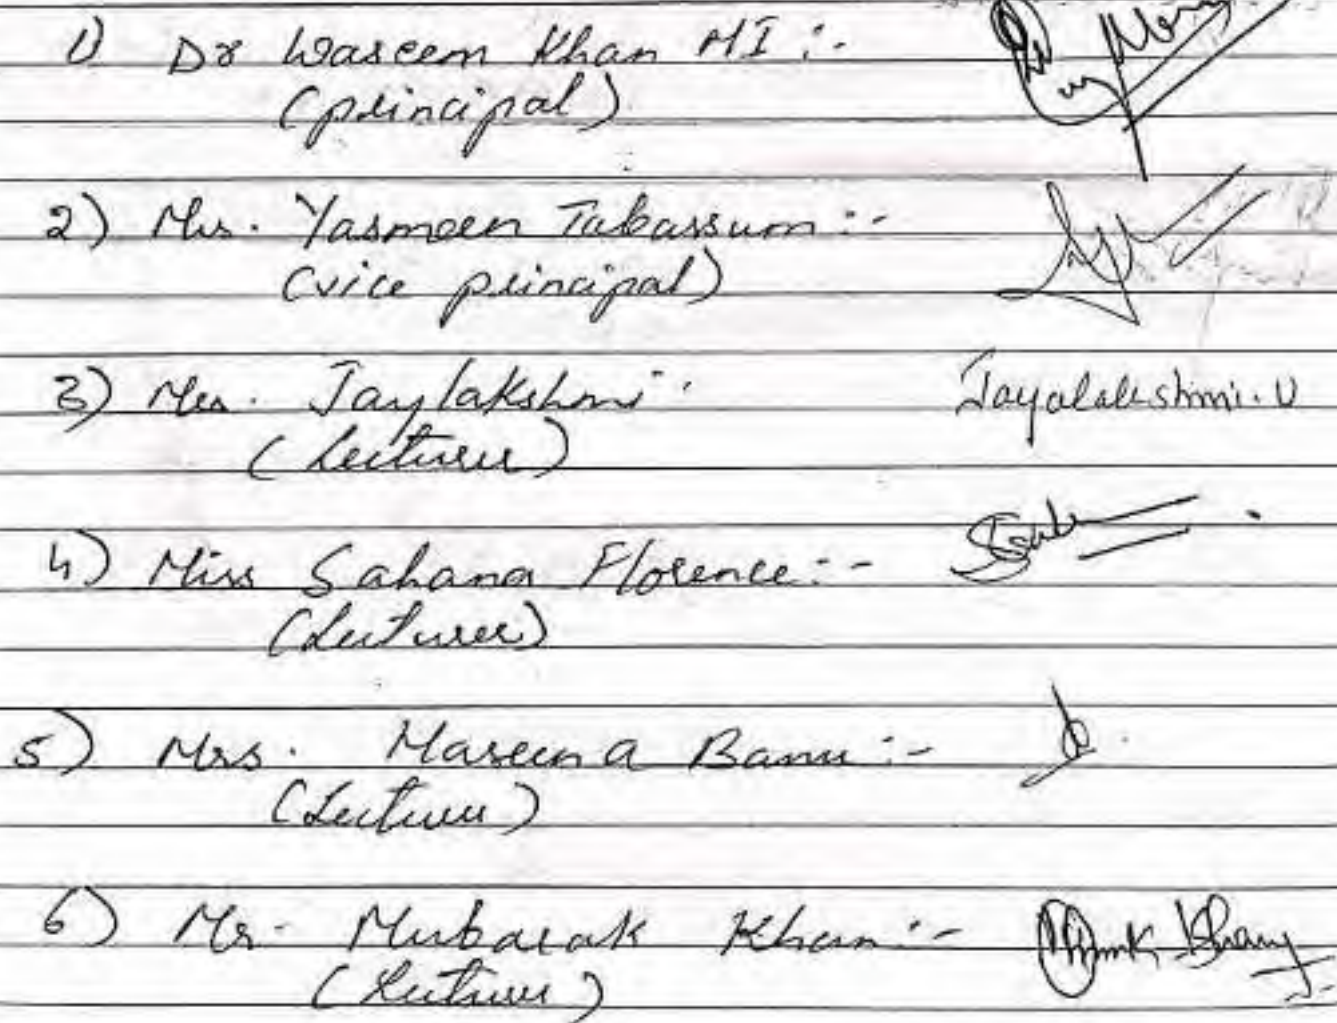 1) Dr Waseem Khan MI :-
(principal)
2) Mrs. Yasmeen Tabassum :-
(vice principal)
3) Mrs. Jaylakshmi :- Jayalakshmi. U
(Lecturer)
4) Miss Sahana Florence :-
(Lecturer)
5) Mrs. Maseena Banu :-
(Lecturer)
6) Mr. Mubarak Khan :-
(Lecturer)